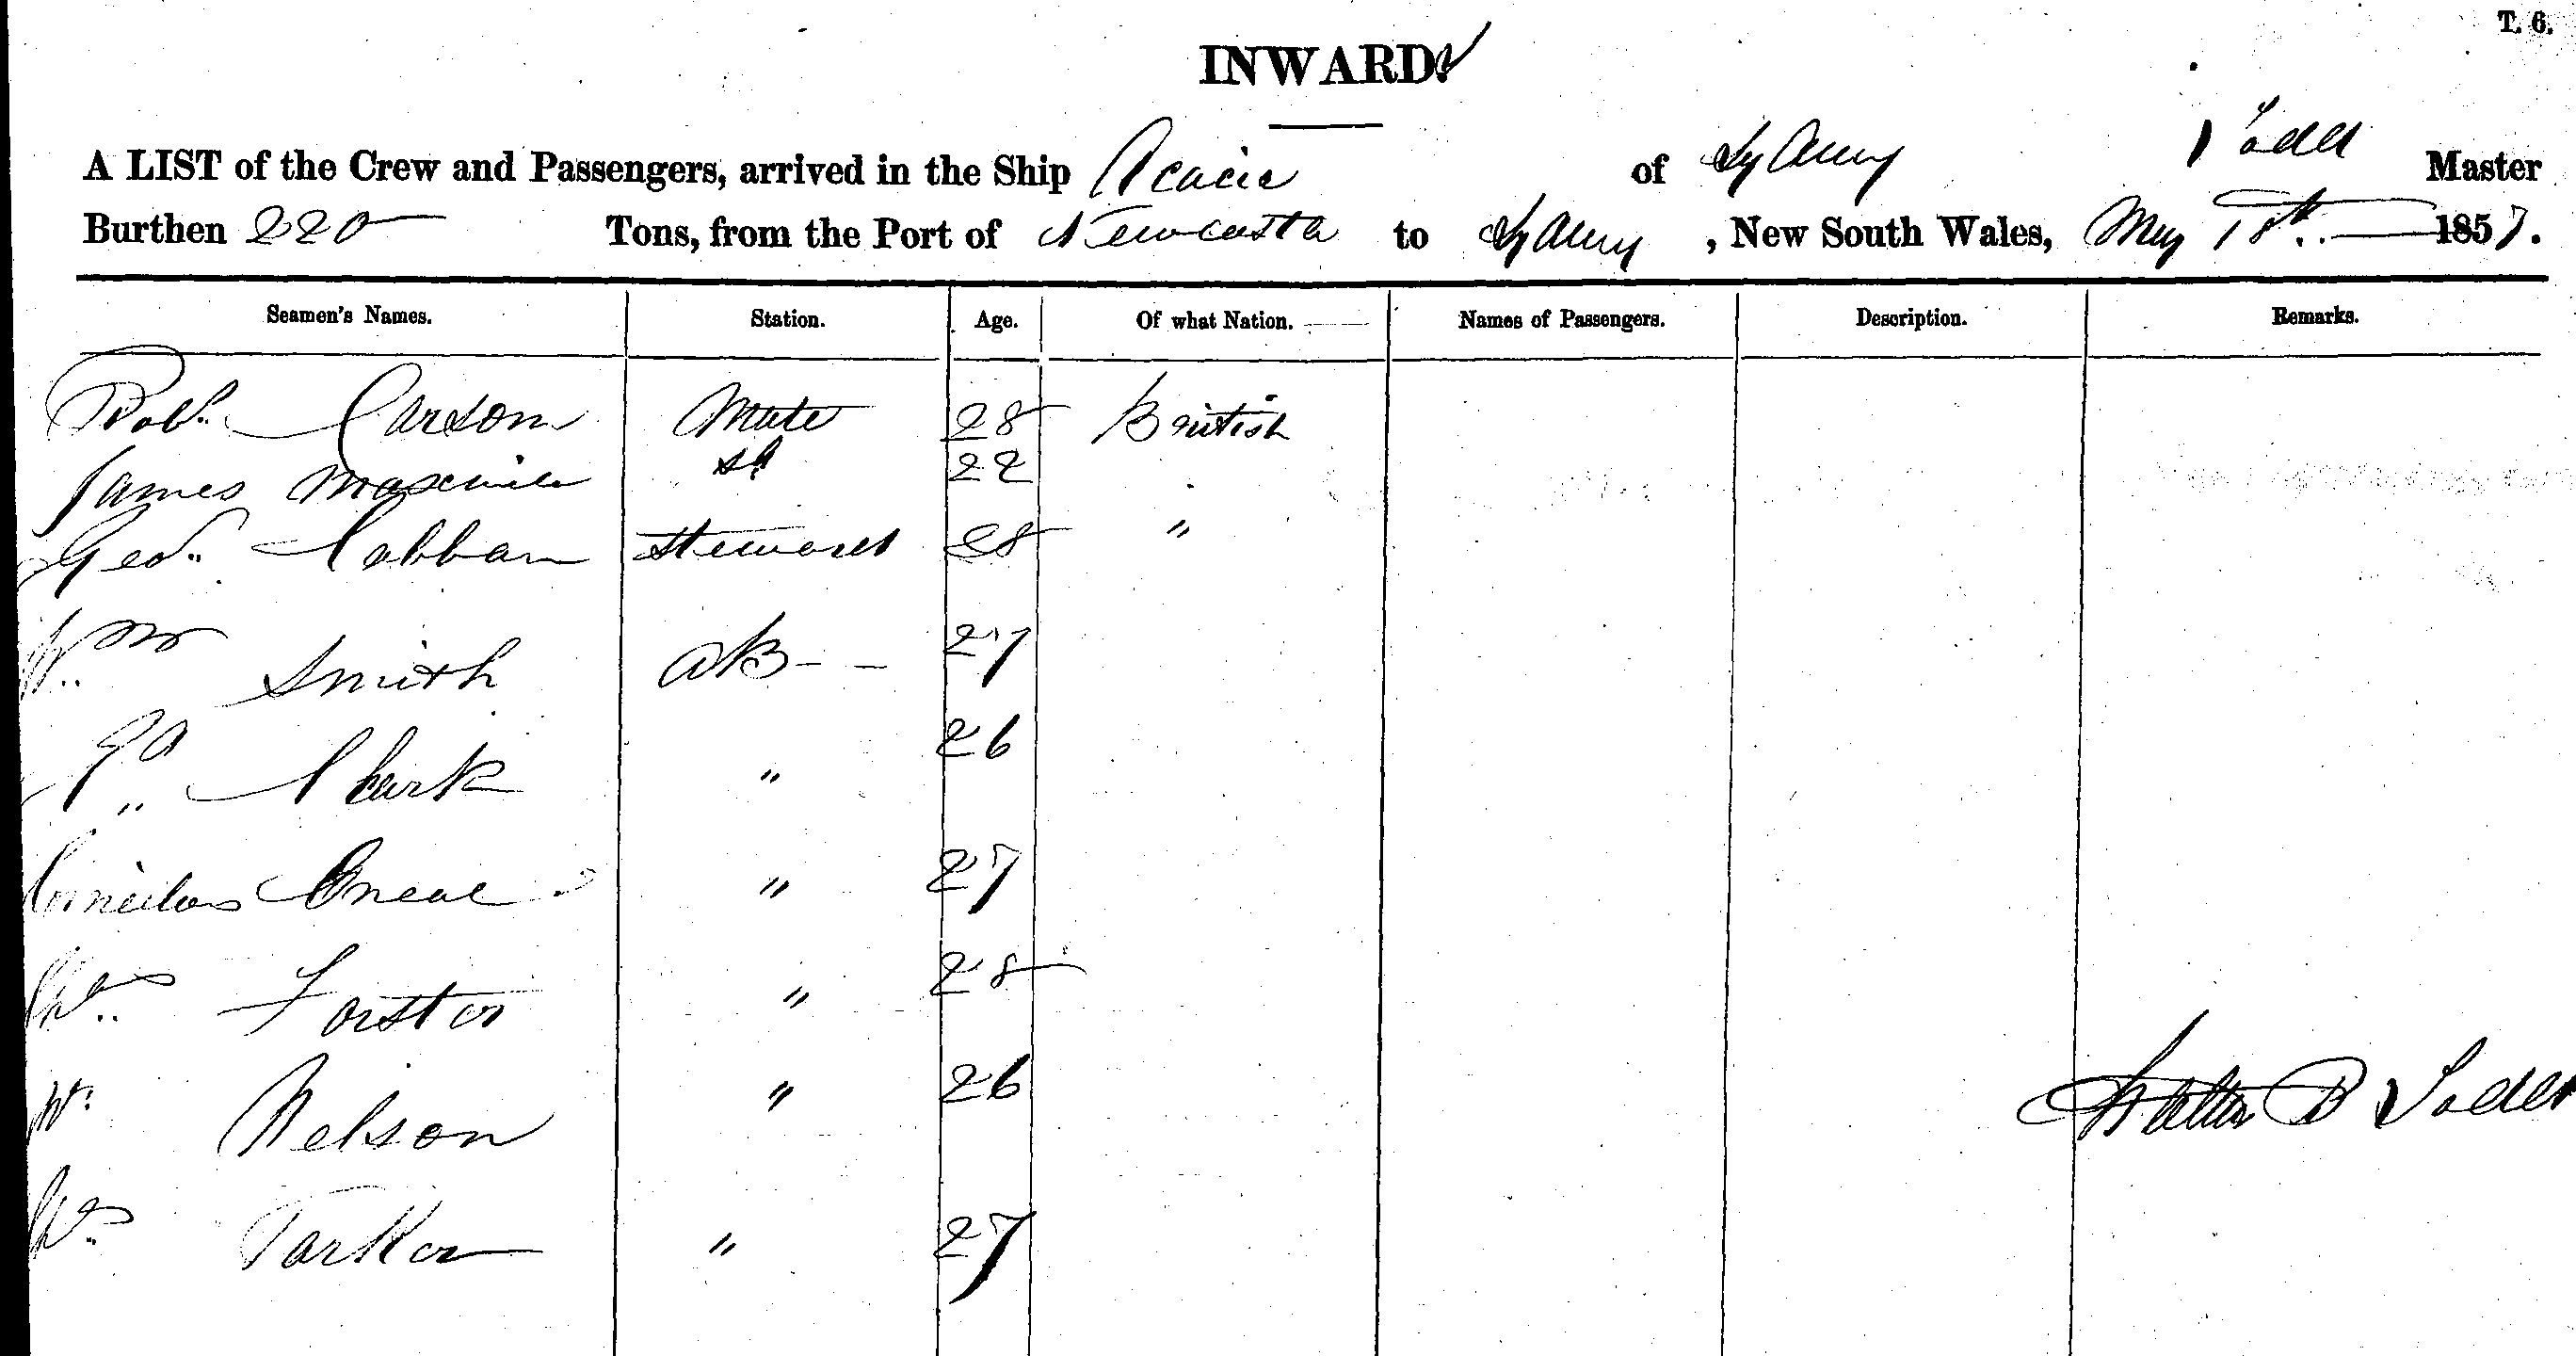 T. 6.
INWARD.
A LIST of the Crew and Passengers, arrived in the Ship Acacia of Sydney Todd Master
Burthen 220 Tons, from the Port of Newcastle to Sydney, New South Wales, May 18th 1857.
Seamen's Names. Station. Age. Of what Nation. Names of Passengers. Description. Remarks.
Robt. Carson Mate 28 British
James 22
Geo. Steward 28 "
Wm Smith AB 27
Clark " 26
Cornelius Oneal " 27
Forster " 28
Nelson " 26
Walter B Todd
" 27